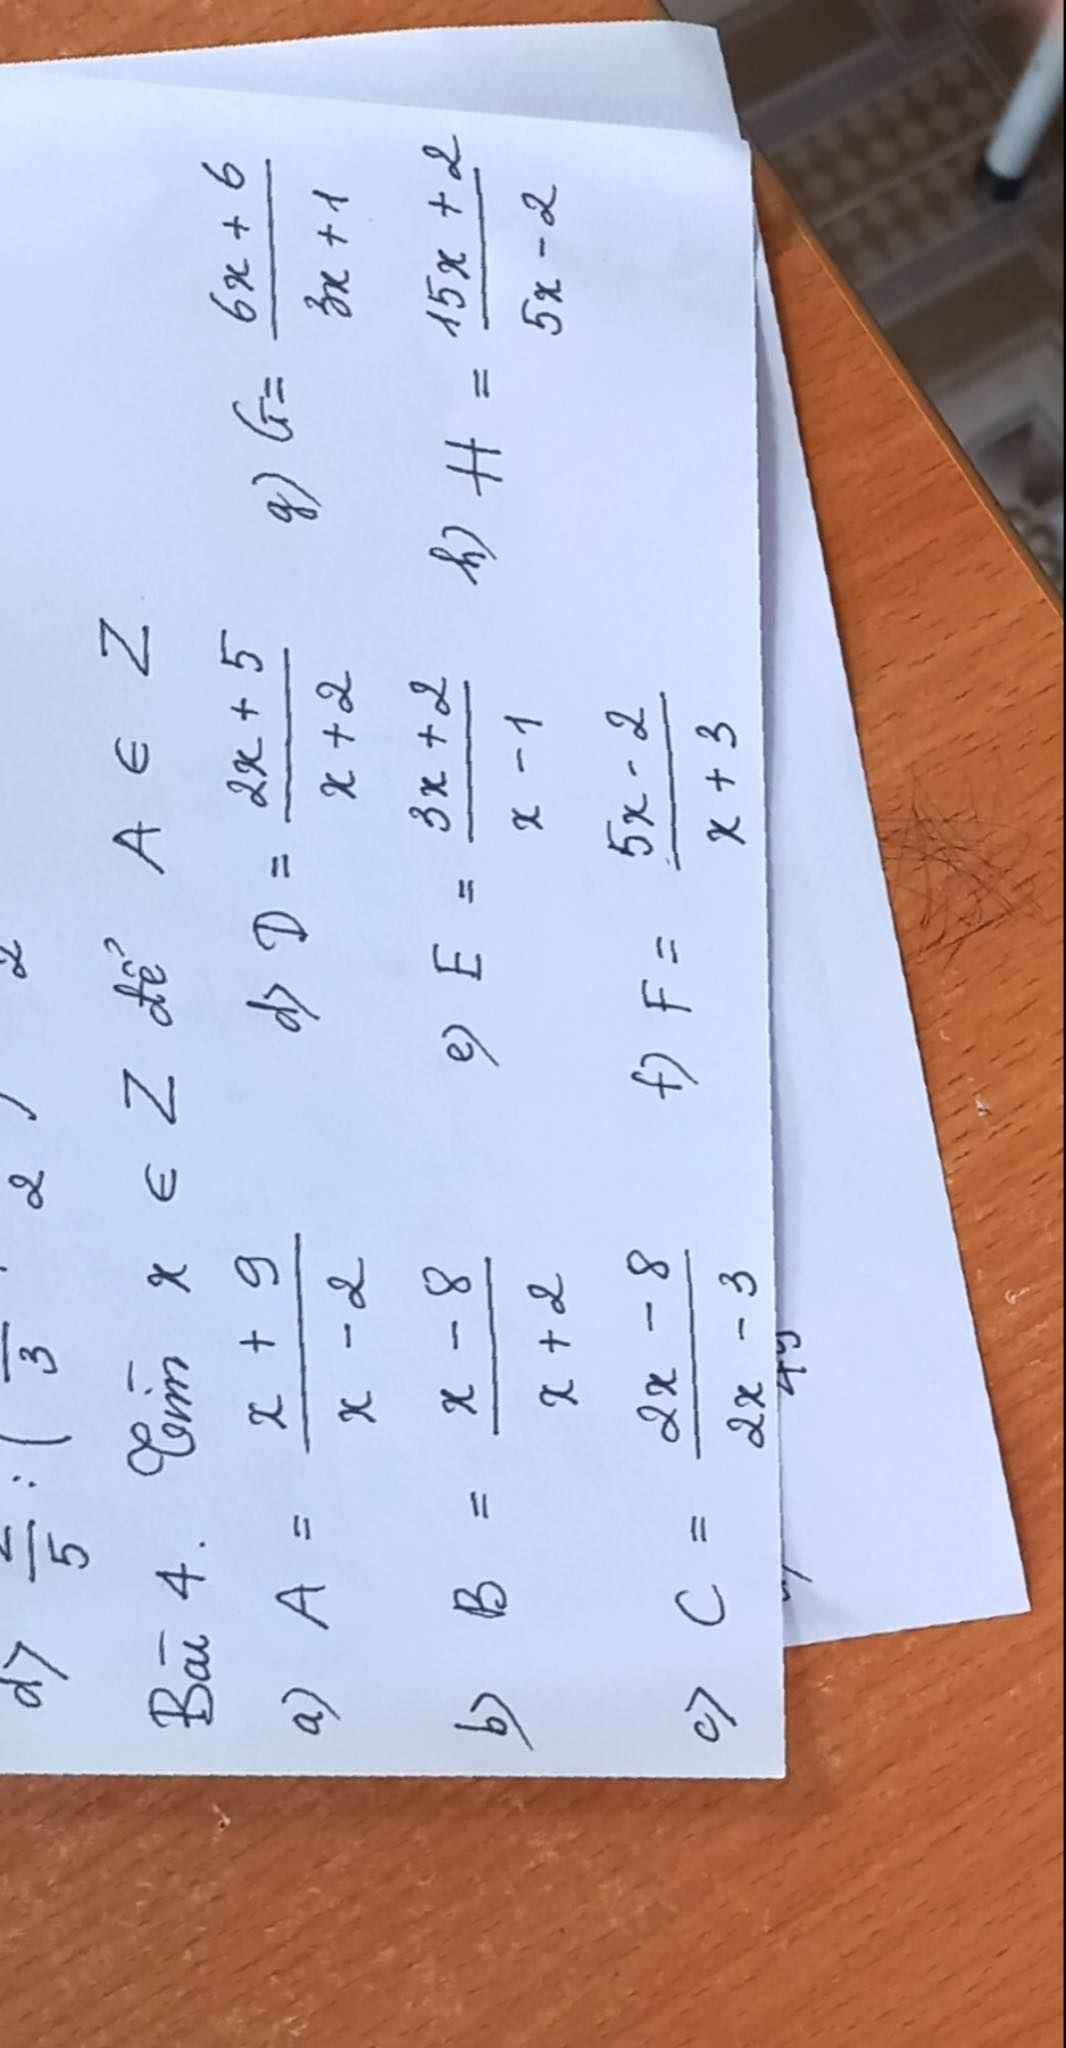 d) 5 : ( 3 2 ) 2
Bài 4. Tìm x ∈ Z để A ∈ Z
a) A = x + 9 / x - 2 d) D = 2x + 5 / x + 2 g) G = 6x + 6 / 3x + 1
b) B = x - 8 / x + 2 e) E = 3x + 2 / x - 1 h) H = 15x + 2 / 5x - 2
c) C = 2x - 8 / 2x - 3 f) F = 5x - 2 / x + 3